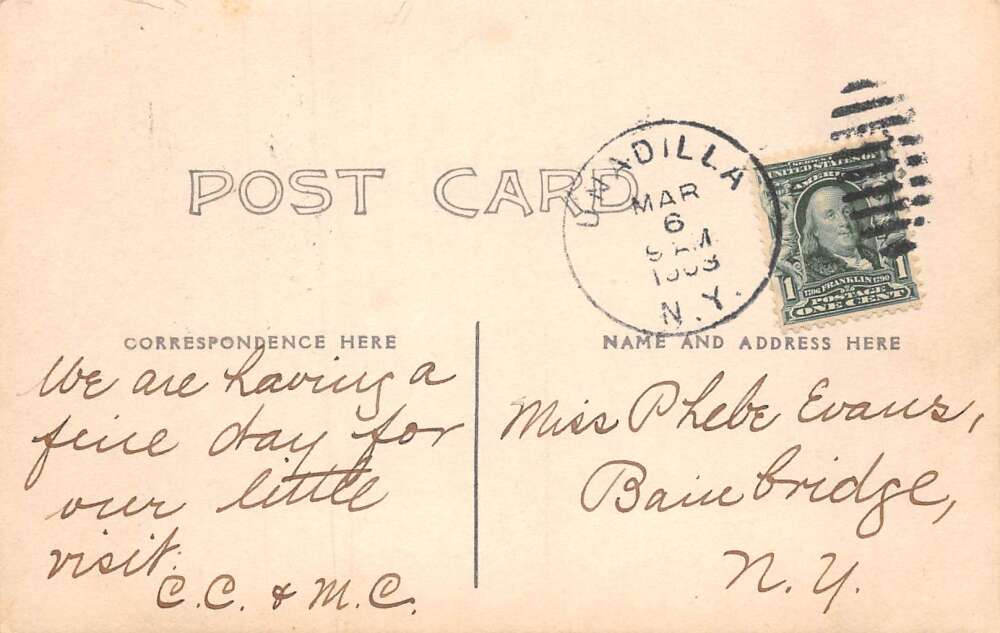 POST CARD
UNADILLA
MAR
6
9 AM
N.Y.
SERIES 1902
UNITED STATES OF AMERICA
1706 FRANKLIN 1790
1 1
POSTAGE
ONE CENT
CORRESPONDENCE HERE
We are having a
fine day for
our little
visit.
C.C. & M.C.
NAME AND ADDRESS HERE
Miss Phebe Evans,
Bainbridge,
N.Y.